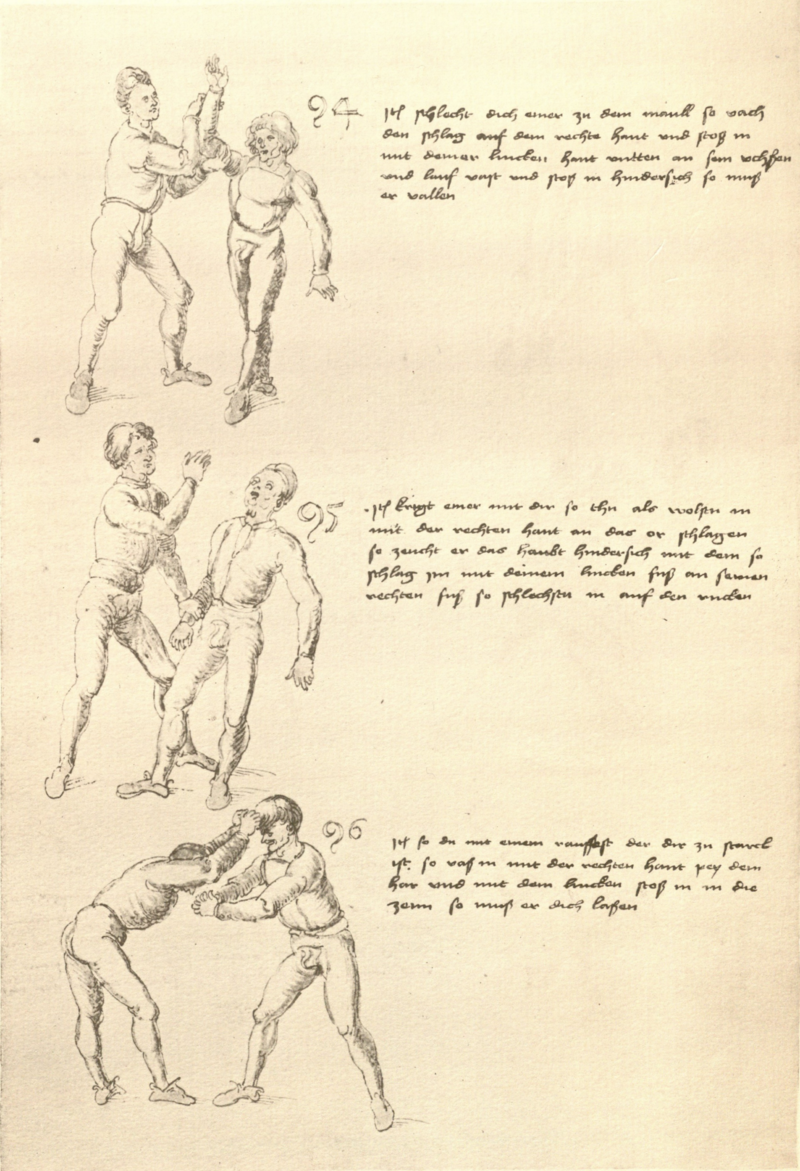 94
Itē schlecht dich einer zu dem maull so vach
den schlag auf dein rechte hant vnd stoß in
mit deiner lincken hant vntten an sein vchssen
vnd lauf vast vnd stoß in hindersich so muß
er vallen
95
Itē krigt einer mit dir so thu als wolstu in
mit der rechten hant an das or schlagen
so zeucht er das haubt hindersich mit dem so
schlag im mit deinem lincken fuß an seinen
rechten fuß so schlechstu in auf den rucken
96
Itē so du mit einem rauffest der dir zu starck
ist so vaß in mit der rechten hant pey dem
har vnd mit dem lincken stoß in in die
zenn so muß er dich laßen